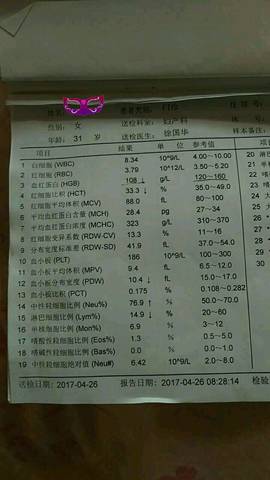 姓名:
门诊
性别: 女 送检科室: 妇产科
年龄: 31 岁 送检医生: 徐国华
样本备注:
项目 结果 单 位 参考值
1 白细胞 (WBC) 8.34 10^9/L 4.00~10.00
2 红细胞 (RBC) 3.79 10^12/L 3.50~5.20
3 血红蛋白 (HGB) 108 ↓ g/L 120~160
4 红细胞比积 (HCT) 33.3 ↓ % 35.0~49.0
5 红细胞平均体积 (MCV) 88.0 fL 80~100
6 平均血红蛋白含量 (MCH) 28.4 pg 27~34
7 平均血红蛋白浓度 (MCHC) 323 g/L 310~370
8 红细胞变异系数 (RDW-CV) 13.3 % 11~16
9 分布宽度标准差 (RDW-SD) 41.9 fL 37.0~54.0
10 血小板 (PLT) 186 10^9/L 100~300
11 血小板平均体积 (MPV) 9.4 fL 6.5~12.0
12 血小板分布宽度 (PDW) 10.4 ↓ fL 15.0~17.0
13 血小板比积 (PCT) 0.175 % 0.108~0.282
14 中性粒细胞比例 (Neu%) 76.9 ↑ % 50.0~70.0
15 淋巴细胞比例 (Lym%) 14.9 ↓ % 20~60
16 单核细胞比例 (Mon%) 6.9 % 3~12
17 嗜酸性细胞比例 (Eos%) 1.3 % 0.5~5.0
18 嗜碱性细胞比例 (Bas%) 0.0 % 0.0~1.0
19 中性粒细胞绝对值 (Neu#) 6.42 10^9/L 2.0~8.0
20 淋巴
21 单核
22 嗜
23 嗜
24
25
26
27
28
29
30
送检日期: 2017-04-26 报告日期: 2017-04-26 08:28:14 检验